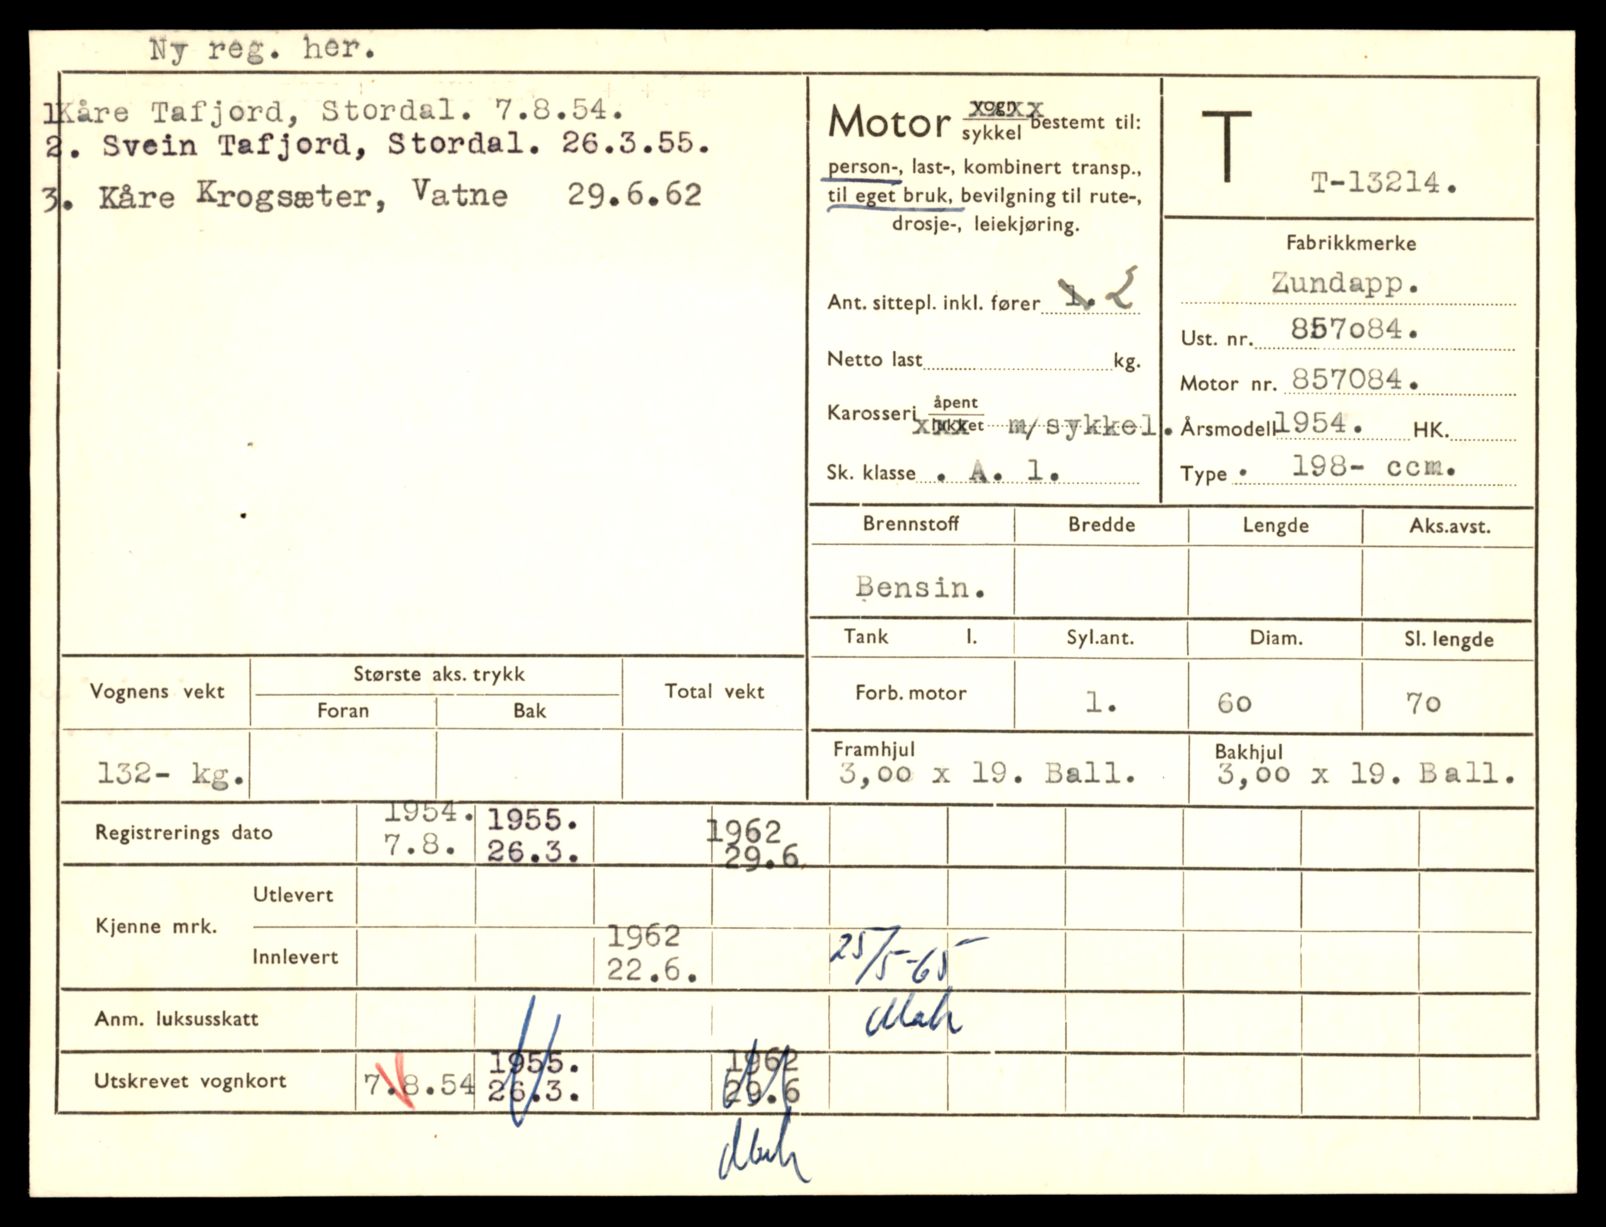 Ny reg. her.
1Kåre Tafjord, Stordal. 7.8.54.
2. Svein Tafjord, Stordal. 26.3.55.
3. Kåre Krogsæter, Vatne 29.6.62
Motor vogn
sykkel bestemt til:
person-, last-, kombinert transp.,
til eget bruk, bevilgning til rute-,
drosje-, leiekjøring.
Ant. sittepl. inkl. fører 1. 2
Netto last kg.
Karosseri åpent
lukket m/sykkel.
Sk. klasse . A. 1.
T
T-13214.
Fabrikkmerke
Zundapp.
Ust. nr. 857o84.
Motor nr. 857084.
Årsmodell 1954. HK.
Type . 198- ccm.
Brennstoff Bredde Lengde Aks.avst.
Bensin.
Tank l. Syl.ant. Diam. Sl. lengde
Forb. motor 1. 6o 7o
Framhjul Bakhjul
3,oo x 19. Ball. 3,oo x 19. Ball.
Vognens vekt Største aks. trykk Total vekt
Foran Bak
132- kg.
Registrerings dato 1954. 1955. 1962
7.8. 26.3. 29.6
Kjenne mrk. Utlevert
Innlevert 1962 25/5-65
22.6.
Anm. luksusskatt
Utskrevet vognkort 7.8.54 1955. 1962
26.3. 29.6